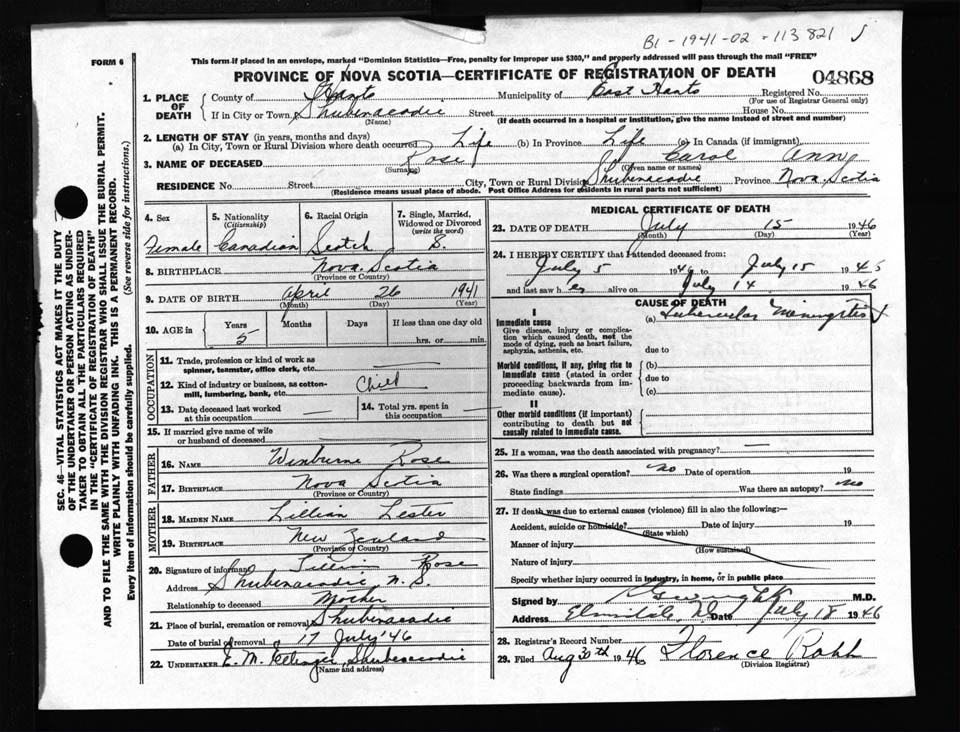 B1-1941-02-113821
FORM 6
This form if placed in an envelope, marked "Dominion Statistics—Free, penalty for improper use $300," and properly addressed will pass through the mail "FREE"
PROVINCE OF NOVA SCOTIA—CERTIFICATE OF REGISTRATION OF DEATH
04868
1. PLACE OF DEATH
County of Hants Municipality of East Hants Registered No.
(For use of Registrar General only)
If in City or Town Shubenacadie Street House No.
(Name) (If death occurred in a hospital or institution, give the name instead of street and number)
2. LENGTH OF STAY (in years, months and days)
(a) In City, Town or Rural Division where death occurred Life (b) In Province Life (c) In Canada (if immigrant)
3. NAME OF DECEASED Rose Carol Ann
(Surname) (Given name or names)
RESIDENCE No. Street City, Town or Rural Division Shubenacadie Province Nova Scotia
(Residence means usual place of abode. Post Office Address for residents in rural parts not sufficient)
4. Sex
Female
5. Nationality
(Citizenship)
Canadian
6. Racial Origin
Scotch
7. Single, Married, Widowed or Divorced
(write the word)
S.
8. BIRTHPLACE Nova Scotia
(Province or Country)
9. DATE OF BIRTH April 26 1941
(Month) (Day) (Year)
10. AGE in Years Months Days If less than one day old
5 hrs. or min.
OCCUPATION
11. Trade, profession or kind of work as spinner, teamster, office clerk, etc.
12. Kind of industry or business, as cotton-mill, lumbering, bank, etc. Child
13. Date deceased last worked at this occupation
14. Total yrs. spent in this occupation
15. If married give name of wife or husband of deceased
FATHER
16. NAME Winburne Rose
17. BIRTHPLACE Nova Scotia
(Province or Country)
MOTHER
18. MAIDEN NAME Lillian Lester
19. BIRTHPLACE New Zealand
(Province or Country)
20. Signature of informant Lillian Rose
Address Shubenacadie N.S.
Relationship to deceased Mother
21. Place of burial, cremation or removal Shubenacadie
Date of burial or removal 17 July '46
22. UNDERTAKER E. M. Shubenacadie
(Name and address)
MEDICAL CERTIFICATE OF DEATH
23. DATE OF DEATH July 15 1946
(Month) (Day) (Year)
24. I HEREBY CERTIFY that I attended deceased from:
July 5 1946 to July 15 1946
and last saw her alive on July 14 1946
CAUSE OF DEATH
I
Immediate cause
Give disease, injury or complication which caused death, not the mode of dying, such as heart failure, asphyxia, asthenia, etc.
(a) Tubercular Meningitis
due to
Morbid conditions, if any, giving rise to immediate cause (stated in order proceeding backwards from immediate cause).
(b)
due to
(c)
II
Other morbid conditions (if important) contributing to death but not causally related to immediate cause.
25. If a woman, was the death associated with pregnancy?
26. Was there a surgical operation? no Date of operation 19
State findings Was there an autopsy? no
27. If death was due to external causes (violence) fill in also the following:—
Accident, suicide or homicide? Date of injury 19
(State which)
Manner of injury
(How sustained)
Nature of injury
Specify whether injury occurred in industry, in home, or in public place
Signed by M.D.
Address Elmsdale, N.S. Date July 18 1946
28. Registrar's Record Number
29. Filed Aug 30th 1946 Florence
(Division Registrar)
SEC. 46—VITAL STATISTICS ACT MAKES IT THE DUTY
OF THE UNDERTAKER OR PERSON ACTING AS UNDER-
TAKER TO OBTAIN ALL THE PARTICULARS REQUIRED
IN THE "CERTIFICATE OF REGISTRATION OF DEATH"
AND TO FILE THE SAME WITH THE DIVISION REGISTRAR WHO SHALL ISSUE THE BURIAL PERMIT.
WRITE PLAINLY WITH UNFADING INK. THIS IS A PERMANENT RECORD.
Every item of information should be carefully supplied. (See reverse side for instructions.)